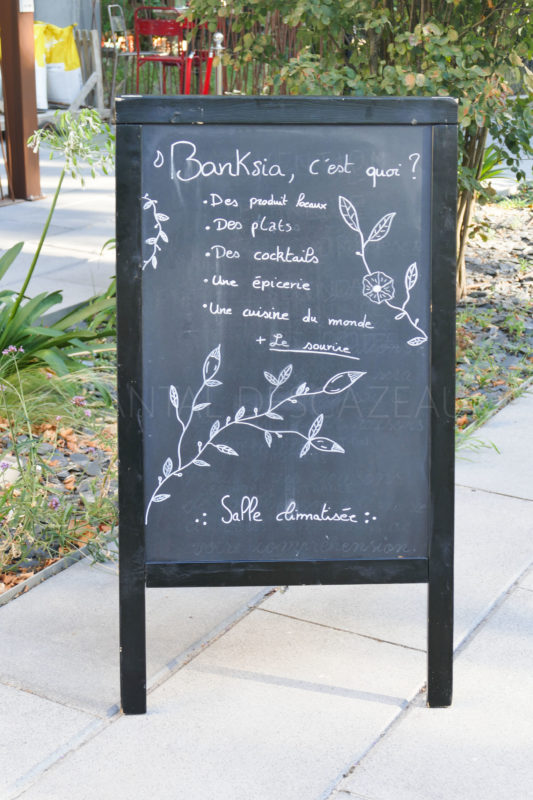 Banksia, c'est quoi ?
• Des produit locaux
• Des plats
• Des cocktails
• Une épicerie
• Une cuisine du monde
+ Le sourire
Salle climatisée